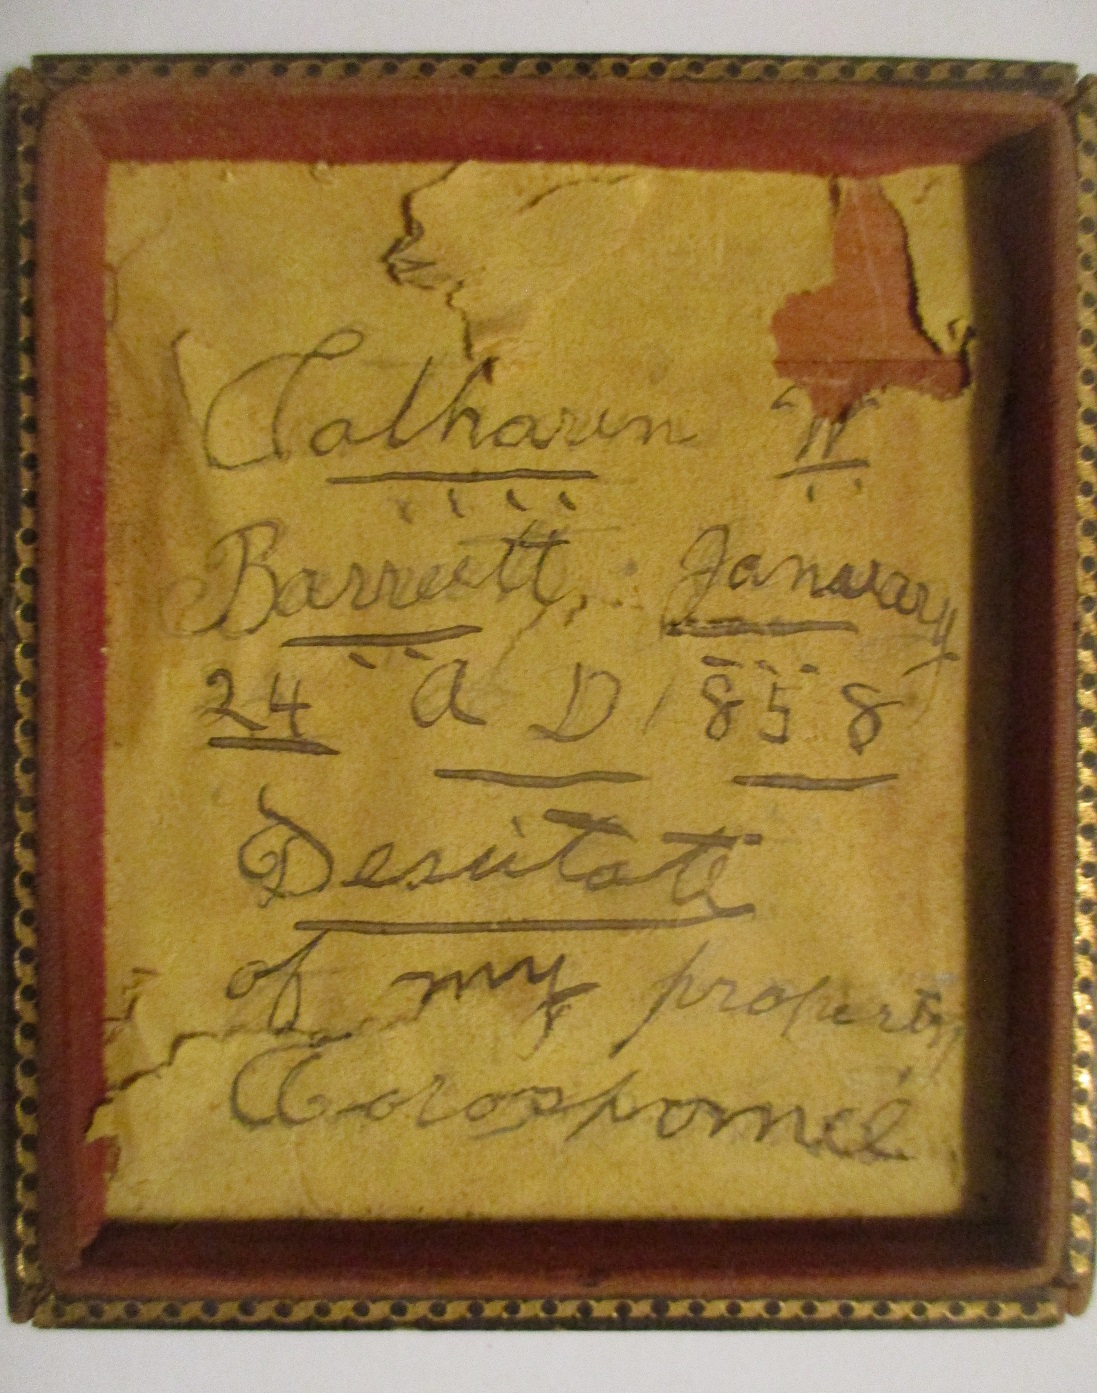 Catharin W
Barrett. January
24 A D 1858
Desitate
of my property